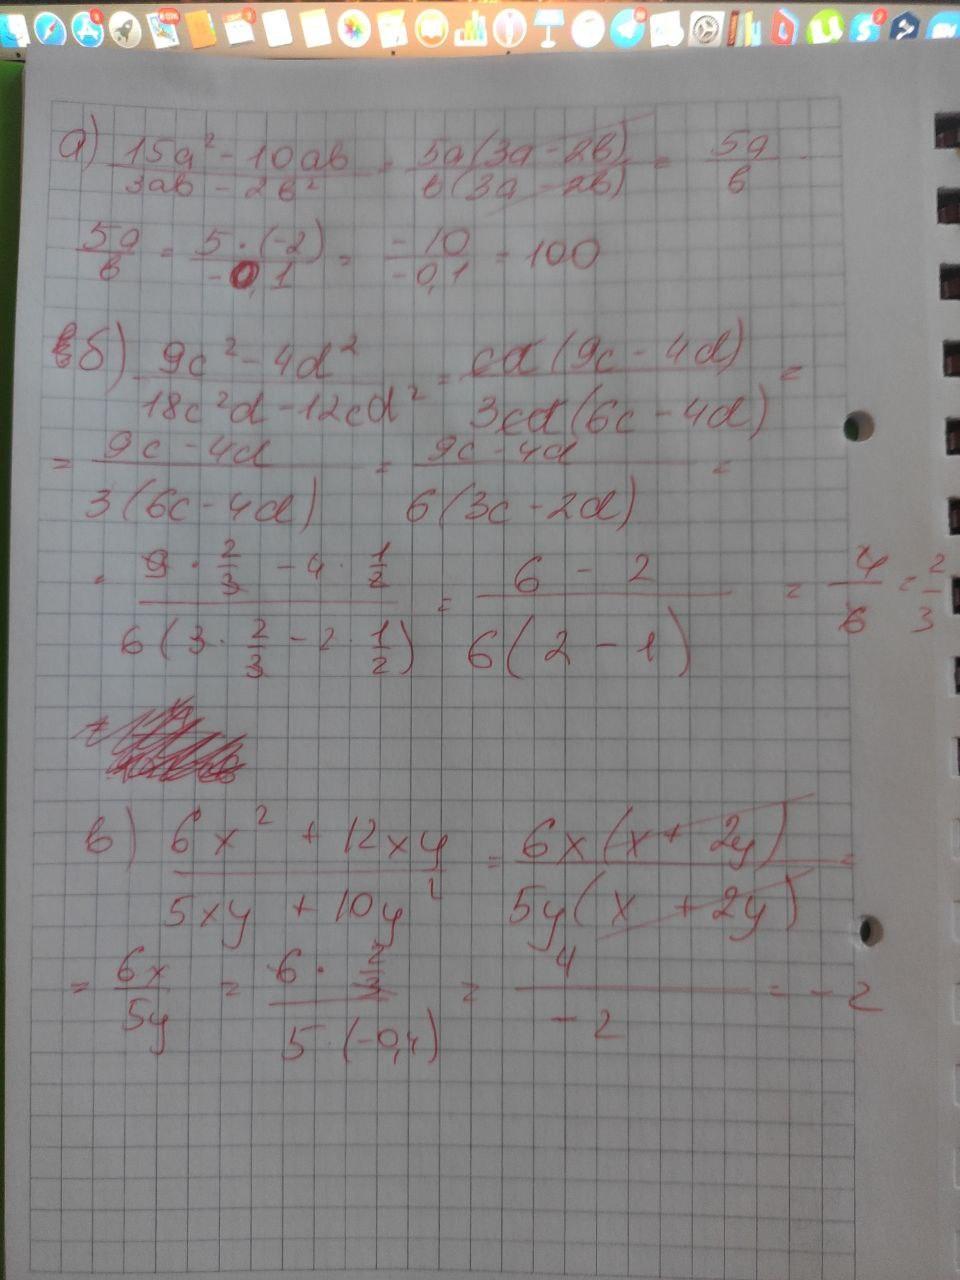 а) (15a² - 10ab)/(3ab - 2b²) = 5a(3a - 2b)/b(3a - 2b) = 5a/b
5a/b = 5·(-2)/-0,1 = -10/-0,1 = 100
б) (9c² - 4d²)/(18c²d - 12cd²) = cd(9c - 4d)/3cd(6c - 4d) =
= (9c - 4d)/3(6c - 4d) = (9c - 4d)/6(3c - 2d) =
= (9·2/3 - 4·1/2)/6(3·2/3 - 2·1/2) = (6 - 2)/6(2 - 1) = 4/6 = 2/3
в) (6x² + 12xy)/(5xy + 10y²) = 6x(x + 2y)/5y(x + 2y) =
= 6x/5y = 6·2/3/5·(-0,4) = 4/-2 = -2